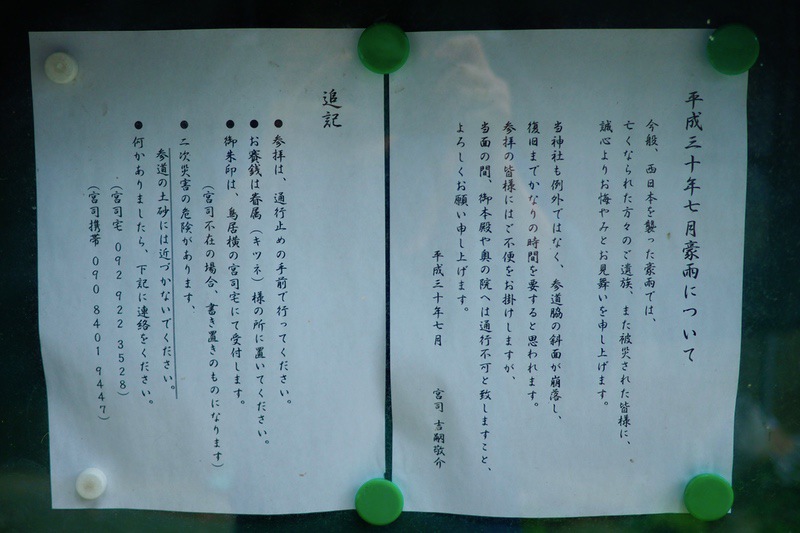 平成三十年七月豪雨について
今般、西日本を襲った豪雨では、
亡くなられた方々のご遺族、また被災された皆様に、
誠心よりお悔やみとお見舞いを申し上げます。
当神社も例外ではなく、参道脇の斜面が崩落し、
復旧までかなりの時間を要すると思われます。
参拝の皆様にはご不便をお掛けしますが、
当面の間、御本殿や奥の院へは通行不可と致しますこと、
よろしくお願い申し上げます。
平成三十年七月
宮司 吉嗣敬介
追記
●参拝は、通行止めの手前で行ってください。
●お賽銭は眷属（キツネ）様の所に置いてください。
●御朱印は、鳥居横の宮司宅にて受付します。
（宮司不在の場合、書き置きのものになります）
●二次災害の危険があります、
参道の土砂には近づかないでください。
●何かありましたら、下記に連絡をください。
（宮司宅 092 922 3528）
（宮司携帯 090 8401 9447）